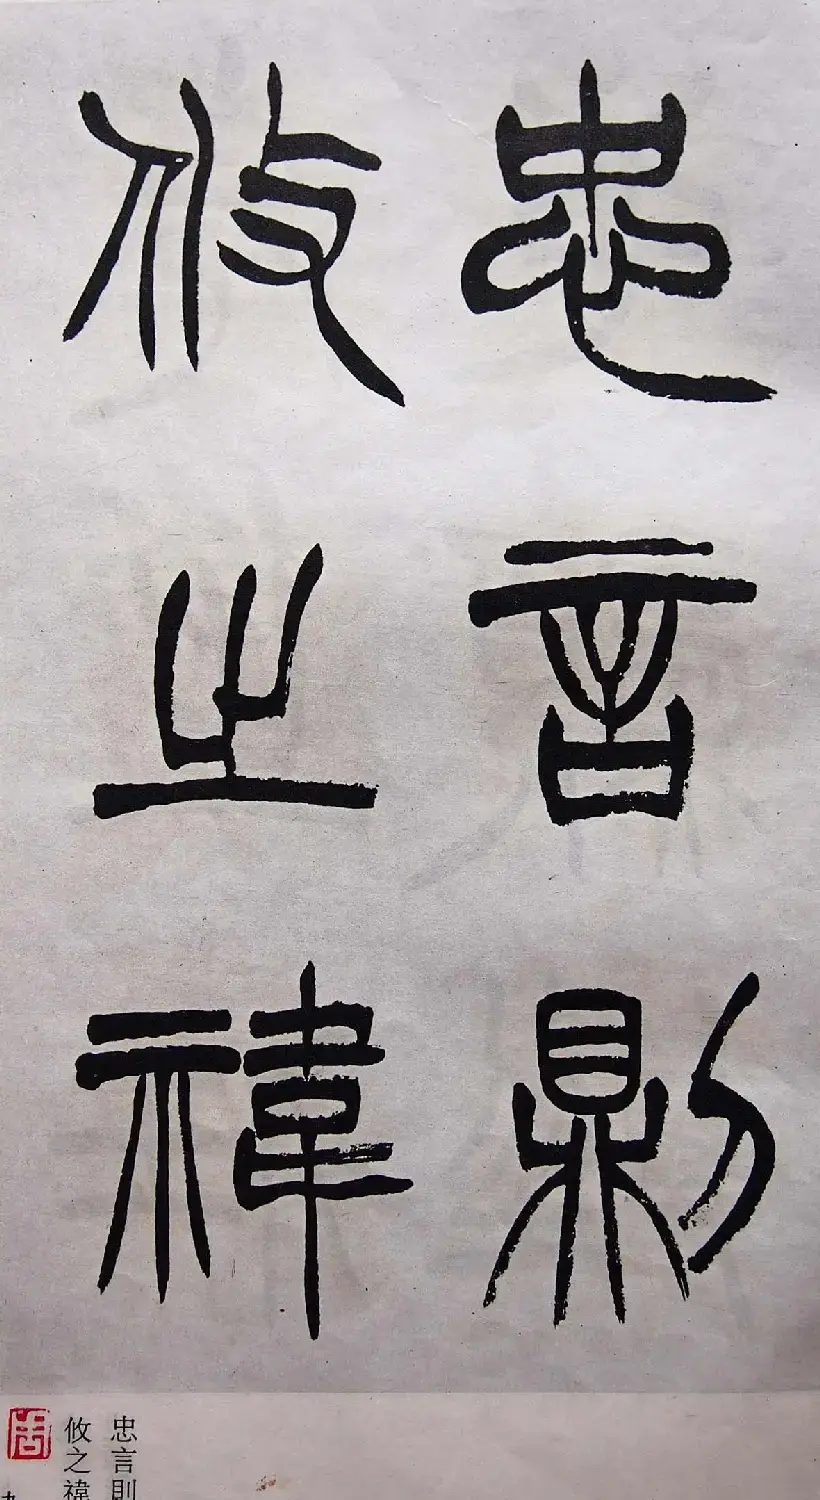 忠言則
攸之禕
忠言則
攸之禕
九